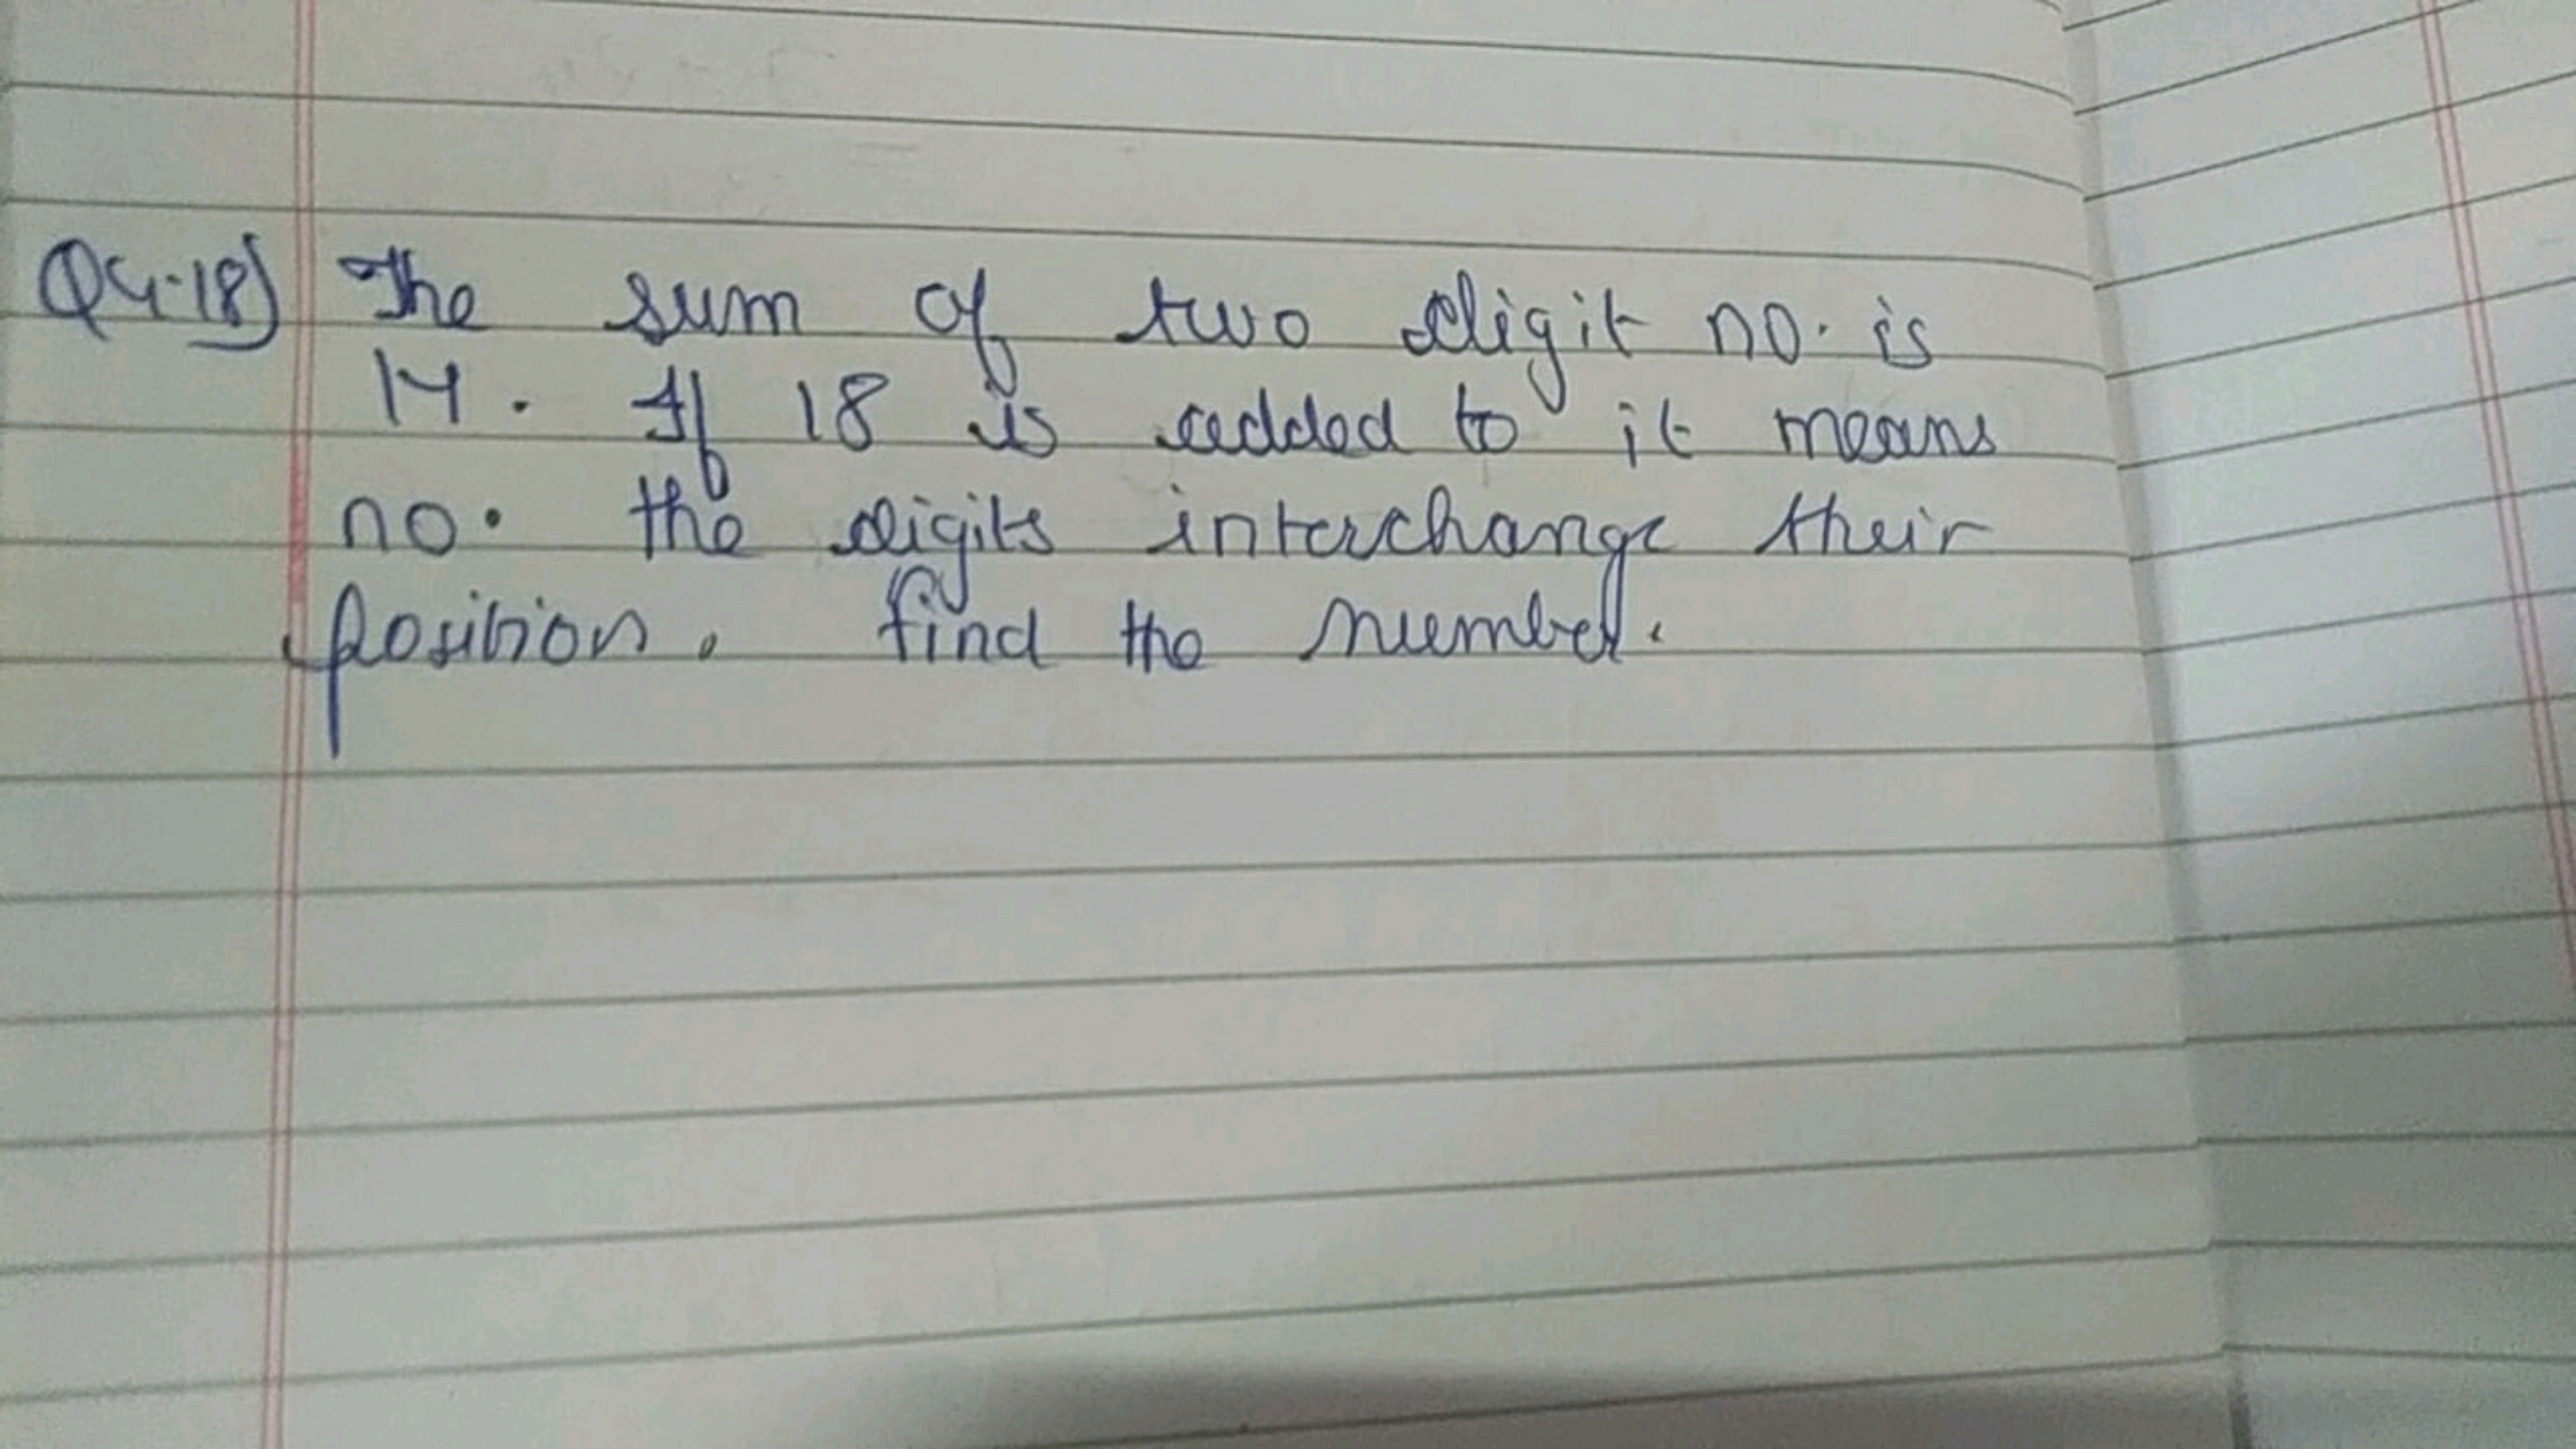 Q4.18) The sum of two digit no. is
14. If 18 is added to it means
no. the digits interchange their
position. find the number.